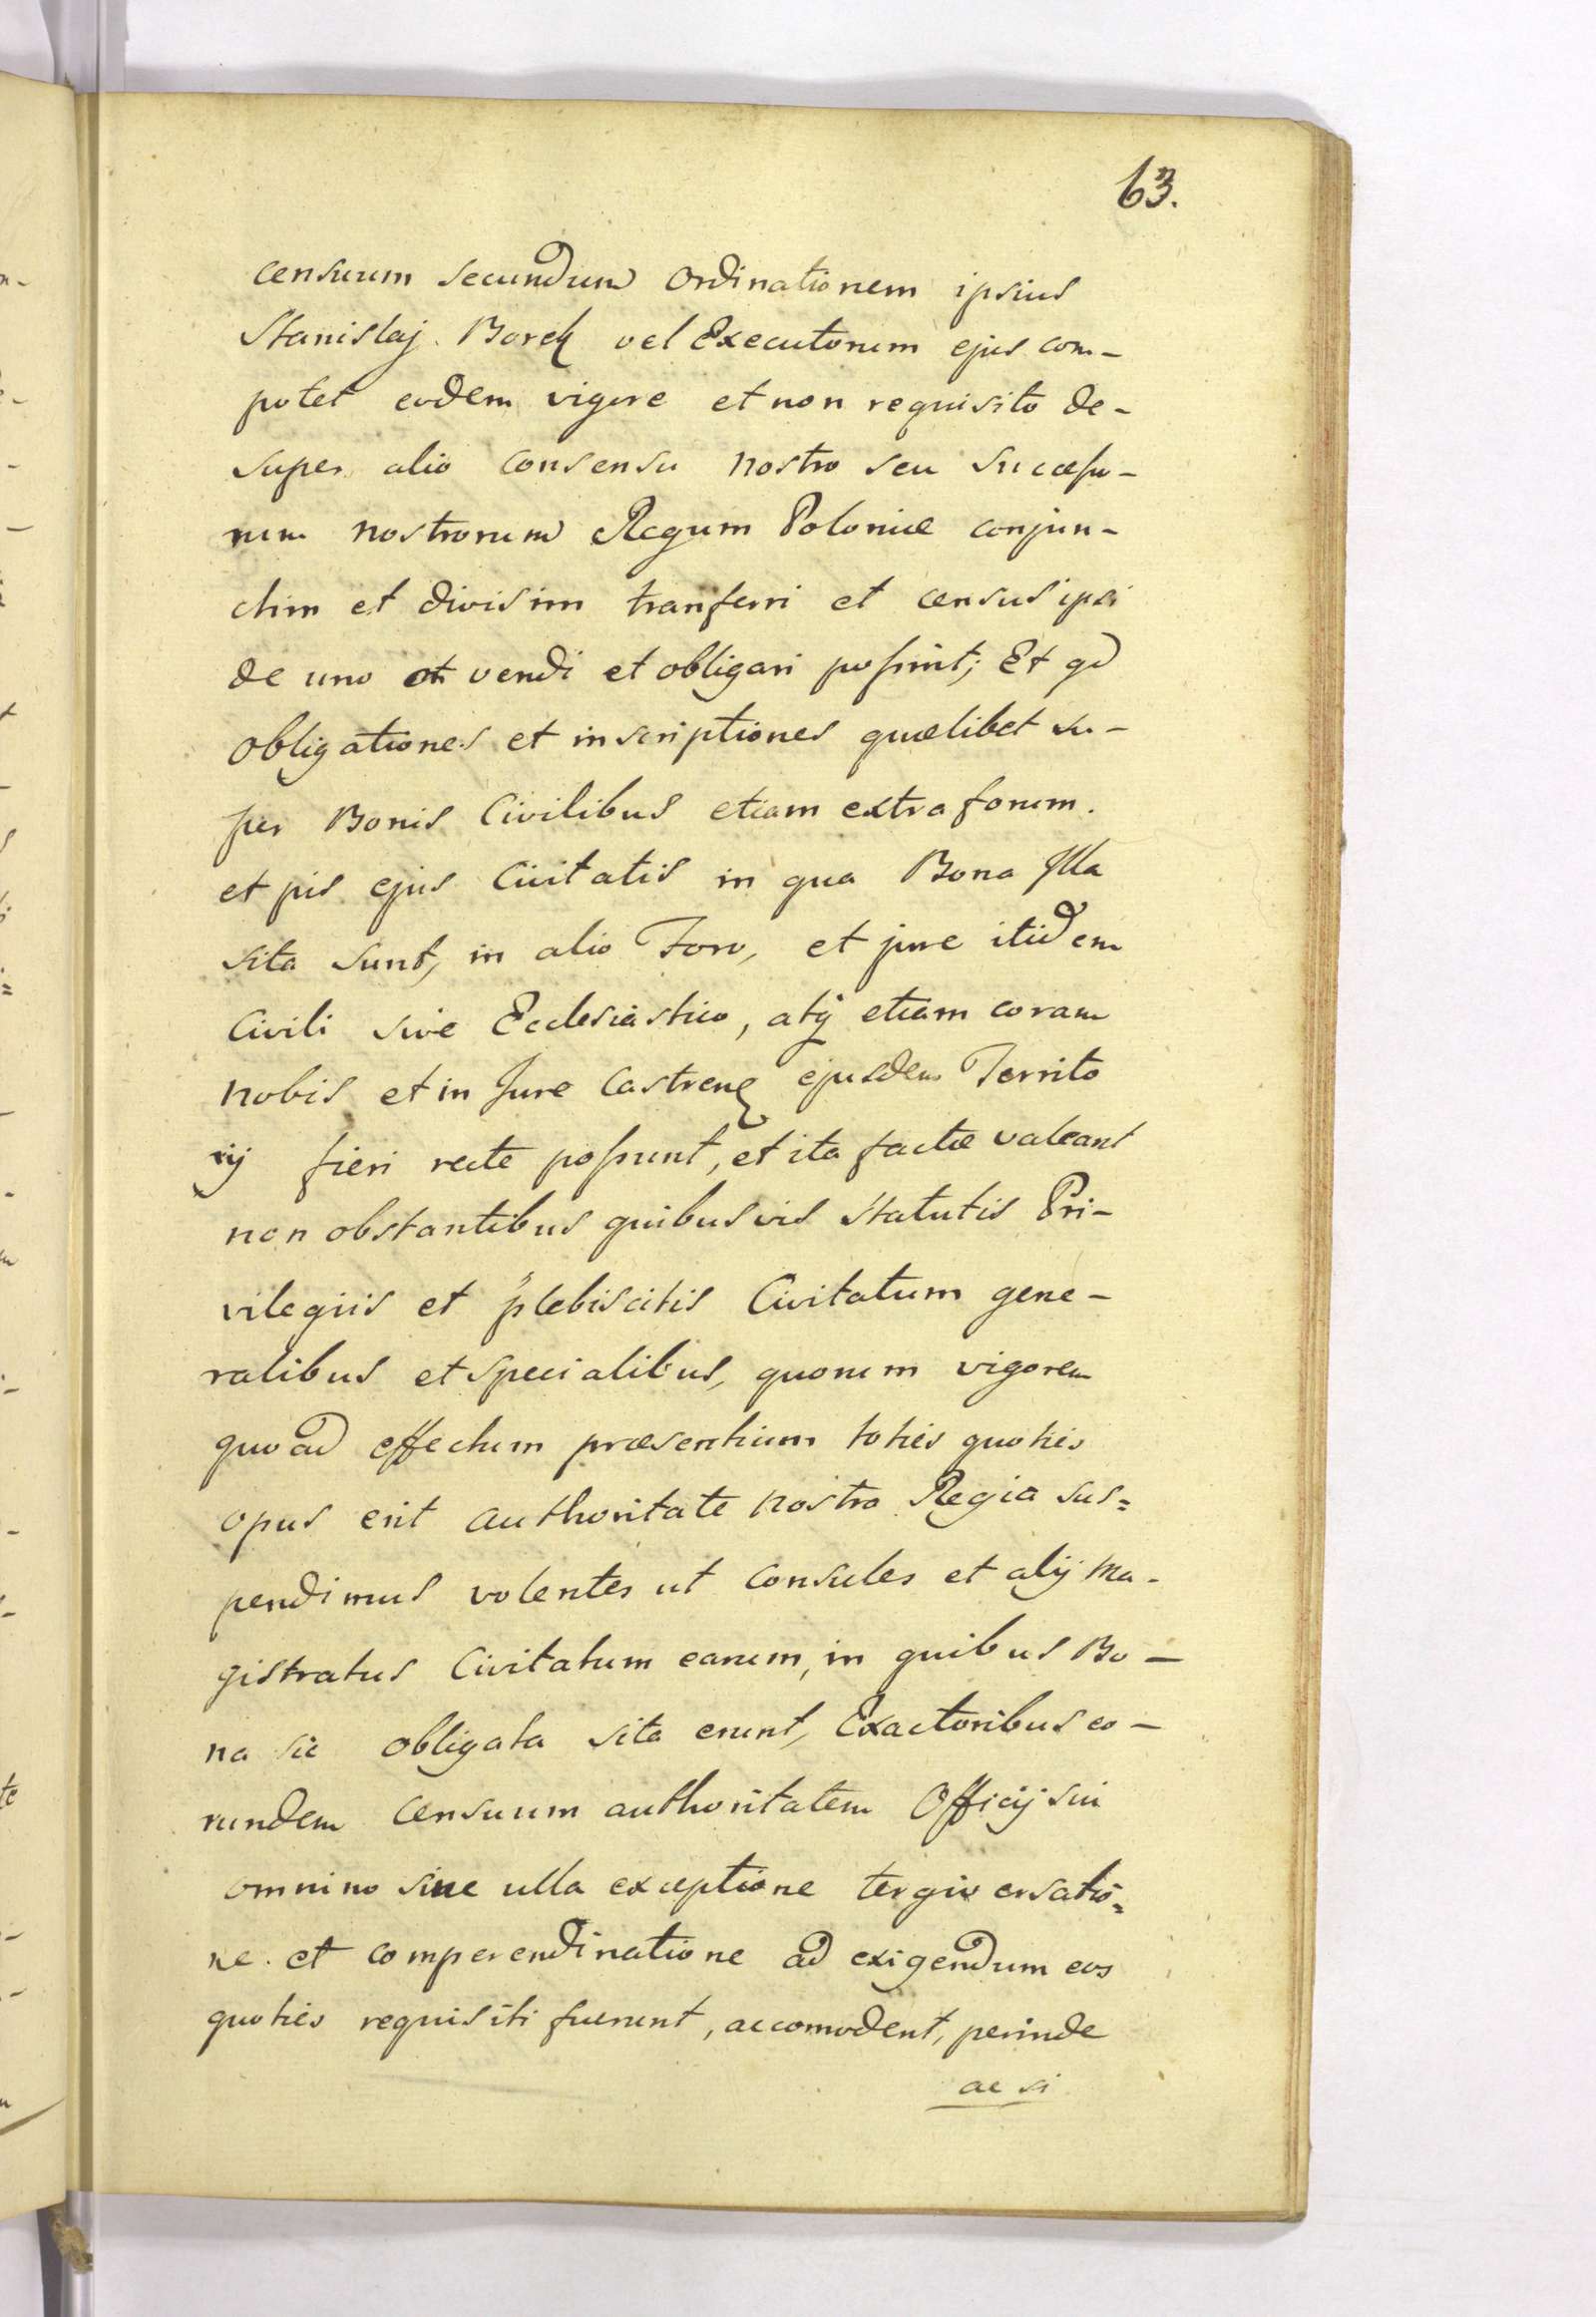 63.
censuum secundum Ordinationem ipsius
Stanislaj Borck vel Executorum ejus com-
potet eodem vigore et non requisito de-
super alio consensu nostro seu Succeßo-
rum nostrorum Regum Poloniæ conjun-
ctim et divisim tranferri et census ipsi
de uno vendi et obligari poßint; Et qd
obligationes et inscriptiones quælibet su-
per Bonis Civilibus etiam extra forum.
et pis ejus Civitatis in qua Bona Illa
sita sunt, in alio Foro, et jure itidem
Civili sive Ecclesiastico, atq etiam coram
nobis et in Jure Castren ejusdem Territo
rij fieri recte poßunt, et ita factæ valeant
non obstantibus quibusvis Statutis Pri-
vilegiis et plebiscitis Civitatum gene-
ralibus et specialibus, quorum vigorem
quoad effectum præsentium toties quoties
opus erit authoritate nostra Regia sus=
pendimus volentes ut Consules et alij Ma-
gistratus Civitatum earum, in quibus Bo-
na sic obligata sita erunt, Exactoribus eo-
rundem Censuum authoritatem Officij sui
omnino sine ulla exceptione tergiversatio=
ne. et comperendinatione ad exigendum eos
quoties requisiti fuerunt, accomodent, perinde
ac si